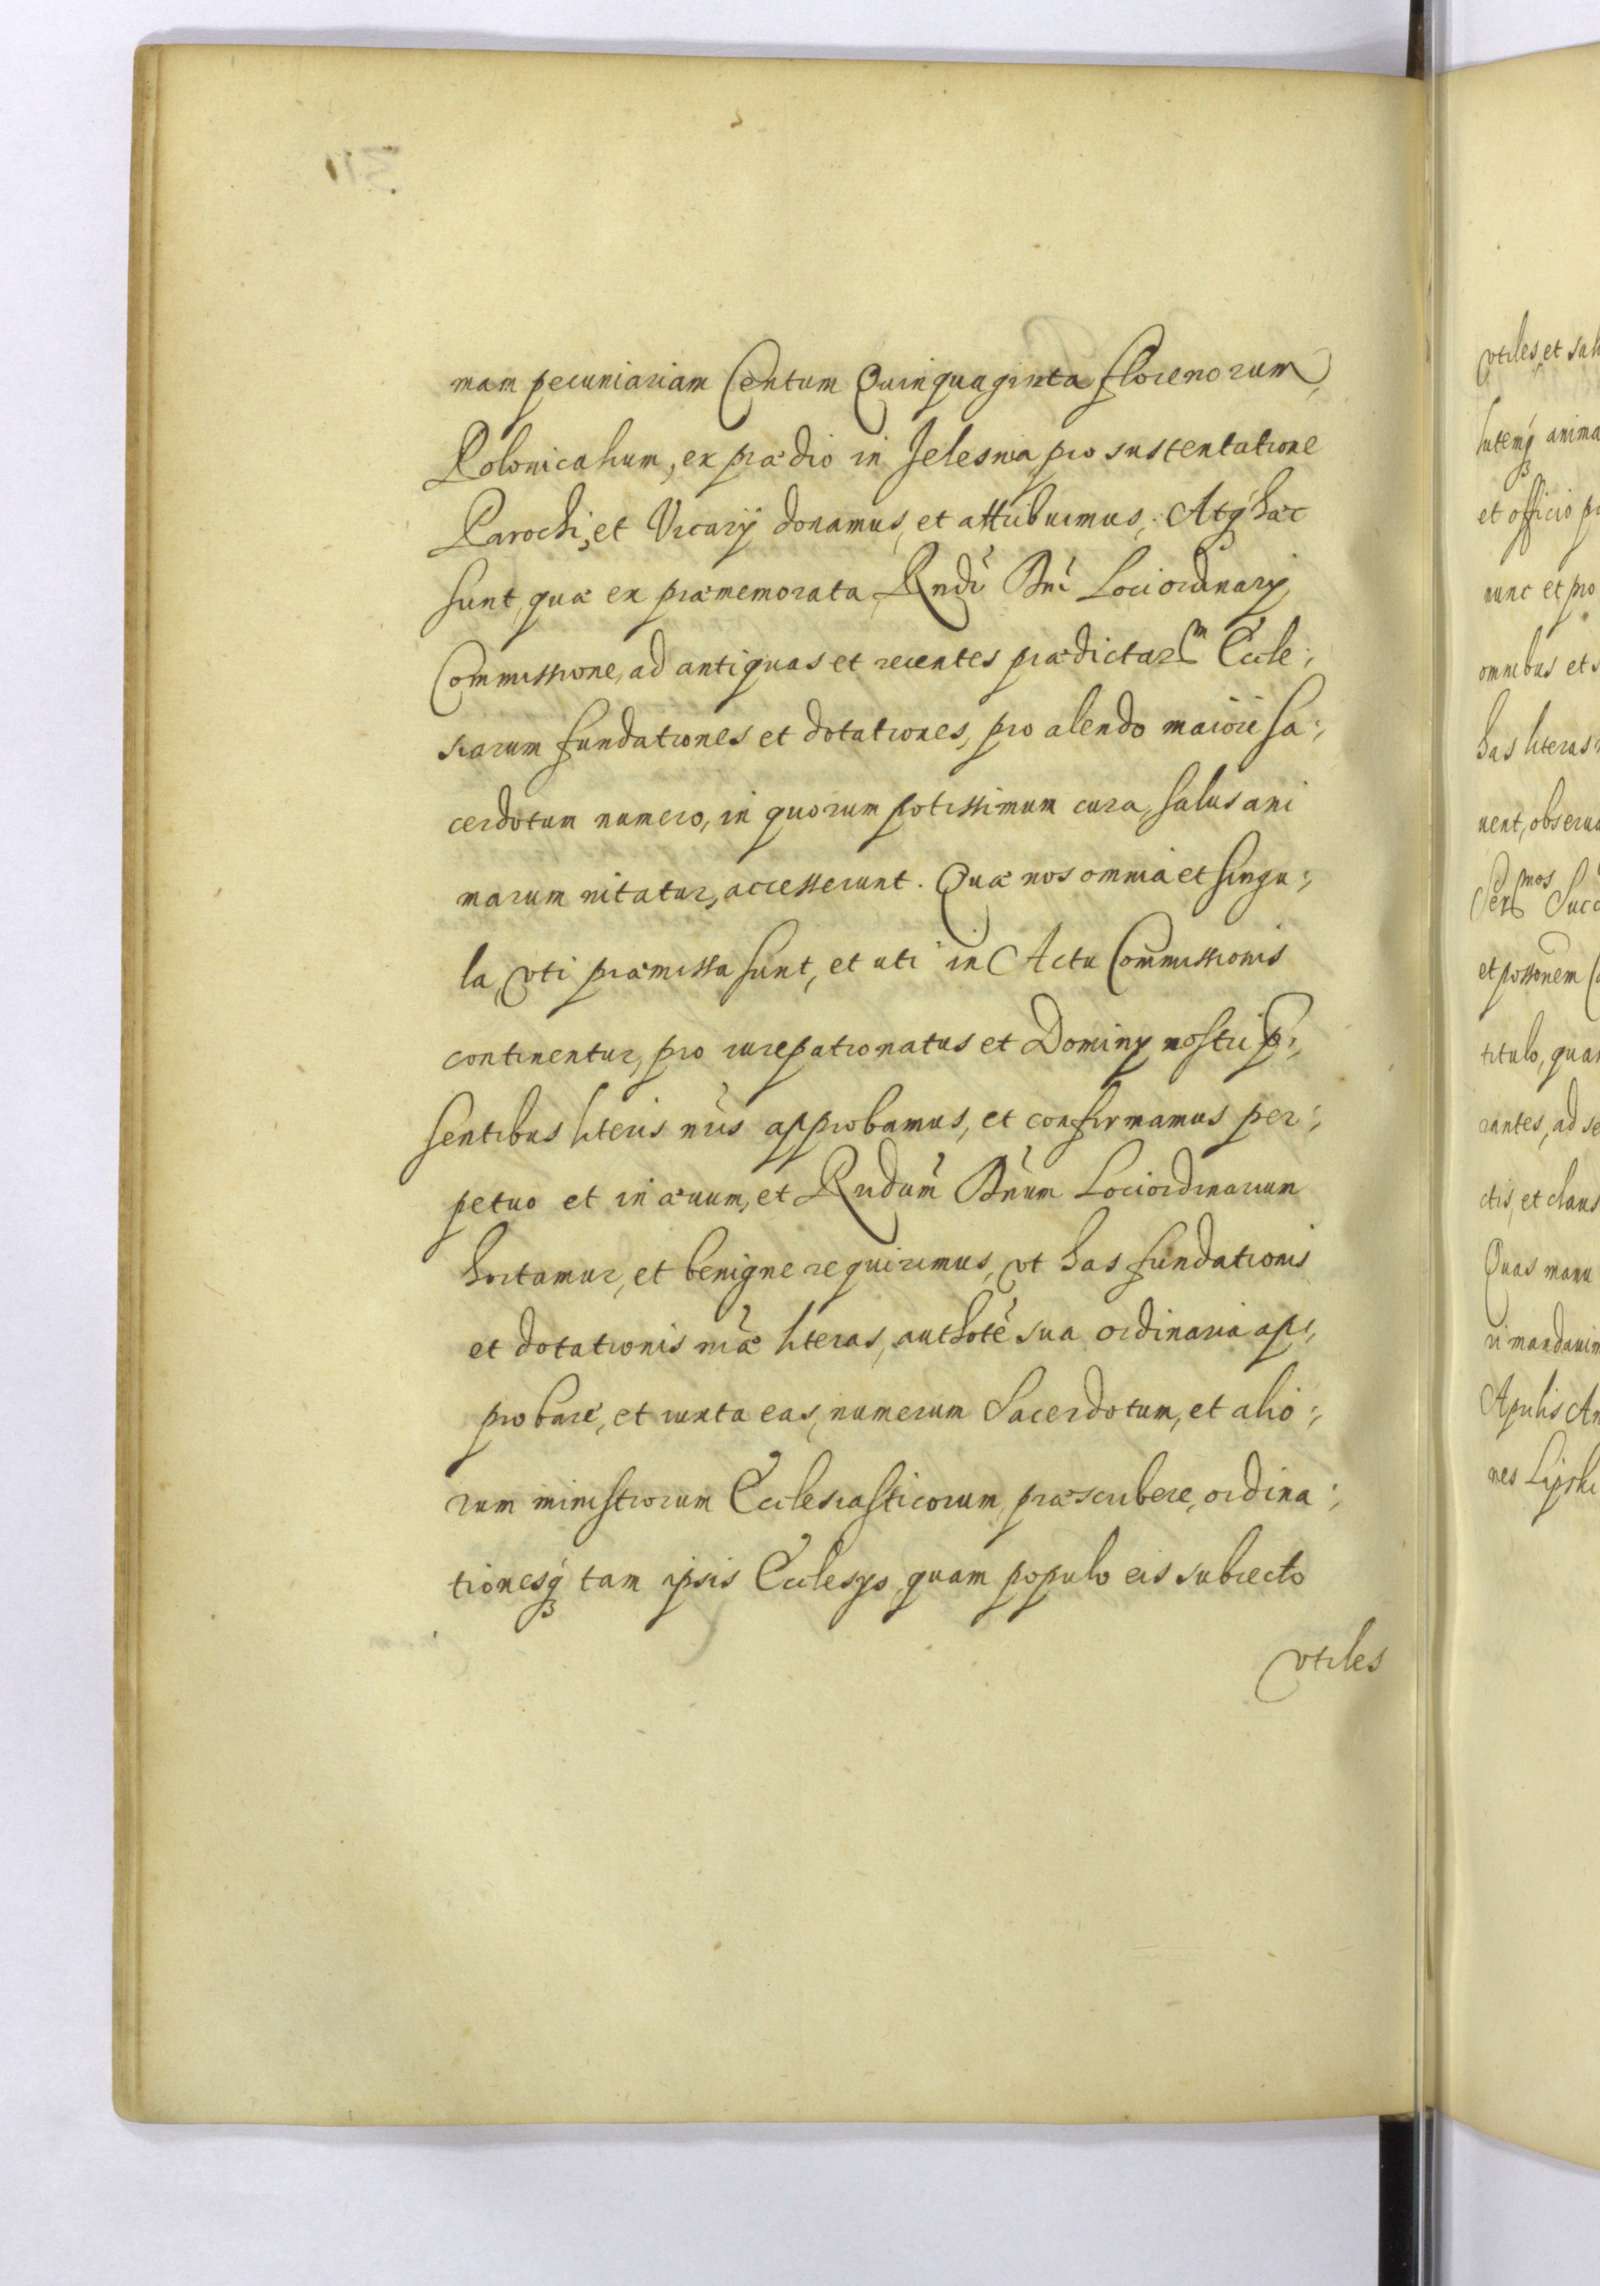 mam pecuniariam Centum Quinquaginta florenorum,
Polonicalium, ex prædio in Jelesnia pro sustentatione
Parochi, et Vicarÿ donamus, et attribuimus, Atq hæc
sunt, quæ ex præmemorata Rndi Dni Lociordinarÿ
Commissione, ad antiquas et recentes prædictarm Eccle:,
siarum fundationes et dotationes, pro alendo maiori sa:,
cerdotum numero, in quorum potissimum cura, salus ani
marum nitatur, accesserunt. Quæ nos omnia et singu:,
la, vti præmissa sunt, et uti in Actu Commissionis
continentur, pro iurepatronatus et Dominÿ nostri p:,
sentibus literis nris approbamus, et confirmamus per:,
petuo et in ævum, et Rndum Dnum Lociordinarium
hortamur, et benigne requirimus, vt has fundationis
et dotationis nræ literas, authote sua ordinaria ap:,
probare, et iuxta eas, numerum Sacerdotum, et alio:,
rum ministrorum Ecclesiasticorum præscribere, ordina:,
tionesq tam ipsis Ecclesÿs, quam populo eis subiecto
vtiles
vtiles, et sal
lutemq anima
et officio
nunc et pro
omnibus et
has literas
uent,
Sermos Succ
et possonem
titulo,
rantes, ad se
ctis, et claus
Quas manu
ri mandauim
Apulis
nes Lipski
311